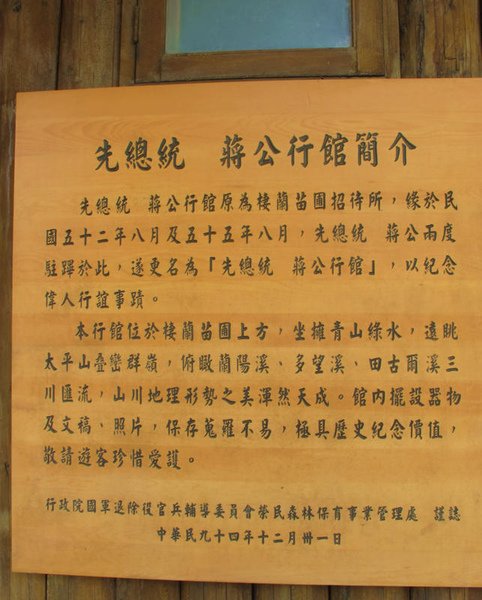 先總統　蔣公行館簡介
先總統　蔣公行館原為棲蘭苗圃招待所，緣於民
國五十二年八月及五十五年八月，先總統　蔣公兩度
駐蹕於此，遂更名為「先總統　蔣公行館」，以紀念
偉人行誼事蹟。
本行館位於棲蘭苗圃上方，坐擁青山綠水，遠眺
太平山叠巒群嶺，俯瞰蘭陽溪、多望溪、田古爾溪三
川匯流，山川地理形勢之美渾然天成。館內擺設器物
及文稿、照片，保存蒐羅不易，極具歷史紀念價值，
敬請遊客珍惜愛護。
行政院國軍退除役官兵輔導委員會榮民森林保育事業管理處　謹誌
中華民九十四年十二月卅一日